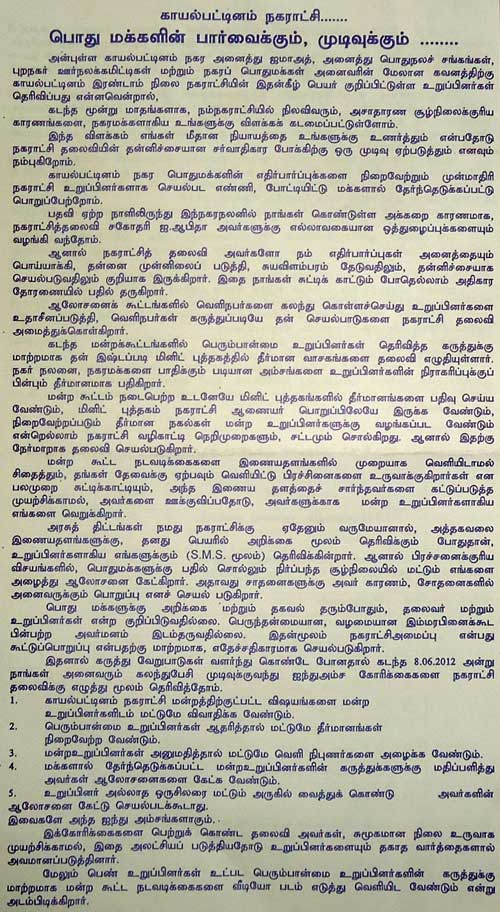 காயல்பட்டினம் நகராட்சி.......
பொது மக்களின் பார்வைக்கும், முடிவுக்கும் ........
அன்புள்ள காயல்பட்டினம் நகர அனைத்து ஐமாஅத், அனைத்து பொதுநலச் சங்கங்கள்,
புறநகர் ஊர்நலக்கமிட்டிகள் மற்றும் நகரப் பொதுமக்கள் அனைவரின் மேலான கவனத்திற்கு
காயல்பட்டினம் இரண்டாம் நிலை நகராட்சியின் இதன்கீழ் பெயர் குறிப்பிட்டுள்ள உறுப்பினர்கள்
தெரிவிப்பது என்னவென்றால்,
கடந்த மூன்று மாதங்களாக, நம்நகராட்சியில் நிலவிவரும், அசாதாரண சூழ்நிலைக்குரிய
காரணங்களை, நகரமக்களாகிய உங்களுக்கு விளக்கக் கடமைப்பட்டுள்ளோம்.
இந்த விளக்கம் எங்கள் மீதான நியாயத்தை உங்களுக்கு உணர்த்தும் என்பதோடு
நகராட்சி தலைவியின் தன்னிச்சையான சர்வாதிகார போக்கிற்கு ஒரு முடிவு ஏற்படுத்தும் எனவும்
நம்புகிறோம்.
காயல்பட்டினம் நகர பொதுமக்களின் எதிர்பார்ப்புக்களை நிறைவேற்றும் முன்மாதிரி
நகராட்சி உறுப்பினர்களாக செயல்பட எண்ணி, போட்டியிட்டு மக்களால் தேர்ந்தெடுக்கப்பட்டு
பொறுப்பேற்றோம்.
பதவி ஏற்ற நாளிலிருந்து இந்நகரநலனில் நாங்கள் கொண்டுள்ள அக்கறை காரணமாக,
நகராட்சித்தலைவி சகோதரி ஐ.ஆபிதா அவர்களுக்கு எல்லாவகையான ஒத்துழைப்புக்களையும்
வழங்கி வந்தோம்.
ஆனால் நகராட்சித் தலைவி அவர்களோ நம் எதிர்பார்ப்புகள் அனைத்தையும்
பொய்யாக்கி, தன்னை முன்னிலைப் படுத்தி, சுயவிளம்பரம் தேடுவதிலும், தன்னிச்சையாக
செயல்படுவதிலும் குறியாக இருக்கிறார். இதை நாங்கள் சுட்டிக் காட்டும் போதெல்லாம் அதிகார
தோரணையில் பதில் தருகிறார்.
ஆலோசனைக் கூட்டங்களில் வெளிநபர்களை கலந்து கொள்ளச்செய்து உறுப்பினர்களை
உதாசீனப்படுத்தி, வெளிநபர்கள் கருத்துப்படியே தன் செயல்பாடுகளை நகராட்சி தலைவி
அமைத்துக்கொள்கிறார்.
கடந்த மன்றக்கூட்டங்களில் பெரும்பான்மை உறுப்பினர்கள் தெரிவித்த கருத்துக்கு
மாற்றமாக தன் இஷ்டப்படி மினிட் புத்தகத்தில் தீர்மான வாசகங்களை தலைவி எழுதியுள்ளார்.
நகர் நலனை, நகரமக்களை பாதிக்கும் படியான அம்சங்களை உறுப்பினர்களின் நிராகரிப்புக்குப்
பின்பும் தீர்மானமாக பதிகிறார்.
மன்ற கூட்டம் நடைபெற்ற உடனேயே மினிட் புத்தகங்களில் தீர்மானங்களை பதிவு செய்ய
வேண்டும், மினிட் புத்தகம் நகராட்சி ஆணையர் பொறுப்பிலேயே இருக்க வேண்டும்,
நிறைவேற்றப்படும் தீர்மான நகல்கள் மன்ற உறுப்பினர்களுக்கு வழங்கப்பட வேண்டும்
என்றெல்லாம் நகராட்சி வழிகாட்டி நெறிமுறைகளும், சட்டமும் சொல்கிறது. ஆனால் இதற்கு
நேர்மாறாக தலைவி செயல்படுகிறார்.
மன்ற கூட்ட நடவடிக்கைகளை இணையதளங்களில் முறையாக வெளியிடாமல்
சிதைத்தும், தங்கள் தேவைக்கு ஏற்பவும் வெளியிட்டு பிரச்சினைகளை உருவாக்குகிறார்கள் என
பலமுறை சுட்டிக்காட்டியும், அந்த இணைய தளத்தைச் சார்ந்தவர்களை கட்டுப்படுத்த
முயற்சிக்காமல், அவர்களை ஊக்குவிப்பதோடு, அவர்களுக்காக மன்ற உறுப்பினர்களாகிய
எங்களை வெறுக்கிறார்.
அரசுத் திட்டங்கள் நமது நகராட்சிக்கு ஏதேனும் வருமேயானால், அத்தகவலை
இணையதளங்களுக்கு, தனது பெயரில் அறிக்கை மூலம் தெரிவிக்கும் போதுதான்,
உறுப்பினர்களாகிய எங்களுக்கும் (S.M.S. மூலம்) தெரிவிக்கின்றார். ஆனால் பிரச்சனைக்குரிய
விசயங்களில், பொதுமக்களுக்கு பதில் சொல்லும் நிர்ப்பந்த சூழ்நிலையில் மட்டும் எங்களை
அழைத்து ஆலோசனை கேட்கிறார். அதாவது சாதனைகளுக்கு அவர் காரணம், சோதனைகளில்
அனைவருக்கும் பொறுப்பு எனச் செயல் படுகிறார்.
பொது மக்களுக்கு அறிக்கை மற்றும் தகவல் தரும்போதும், தலைவர் மற்றும்
உறுப்பினர்கள் என்ற குறிப்பிடுவதில்லை. பெருந்தன்மையான, வழமையான இம்மரபினைக்கூட
பின்பற்ற அவர்மனம் இடம்தருவதில்லை. இதன்மூலம் நகராட்சிஅமைப்பு என்பது
கூட்டுப்பொறுப்பு என்பதற்கு மாற்றமாக, எதேச்சதிகாரமாக செயல்படுகிறார்.
இதனால் கருத்து வேறுபாடுகள் வளர்ந்து கொண்டே போனதால் கடந்த 8.06.2012 அன்று
நாங்கள் அனைவரும் கலந்துபேசி முடிவுக்குவந்து ஐந்துஅம்ச கோரிக்கைகளை நகராட்சி
தலைவிக்கு எழுத்து மூலம் தெரிவித்தோம்.
1. காயல்பட்டினம் நகராட்சி மன்றத்திற்குட்பட்ட விஷயங்களை மன்ற
உறுப்பினர்களிடம் மட்டுமே விவாதிக்க வேண்டும்.
2. பெரும்பான்மை உறுப்பினர்கள் ஆதரித்தால் மட்டுமே தீர்மானங்கள்
நிறைவேற்ற வேண்டும்.
3. மன்றஉறுப்பினர்கள் அனுமதித்தால் மட்டுமே வெளி நிபுணர்களை அழைக்க வேண்டும்.
4. மக்களால் தேர்ந்தெடுக்கப்பட்ட மன்றஉறுப்பினர்களின் கருத்துக்களுக்கு மதிப்பளித்து
அவர்கள் ஆலோசனைகளை கேட்க வேண்டும்.
5. உறுப்பினர் அல்லாத ஒருசிலரை மட்டும் அருகில் வைத்துக் கொண்டு அவர்களின்
ஆலோசனை கேட்டு செயல்படக்கூடாது.
இவைகளே அந்த ஐந்து அம்சங்களாகும்.
இக்கோரிக்கைகளை பெற்றுக் கொண்ட தலைவி அவர்கள், சுமூகமான நிலை உருவாக
முயற்சிக்காமல், இதை அலட்சியப் படுத்தியதோடு உறுப்பினர்களையும் தகாத வார்த்தைகளால்
அவமானப்படுத்தினார்.
மேலும் பெண் உறுப்பினர்கள் உட்பட பெரும்பான்மை உறுப்பினர்களின் கருத்துக்கு
மாற்றமாக மன்ற கூட்ட நடவடிக்கைகளை வீடியோ படம் எடுத்து வெளியிட வேண்டும் என்று
அடம்பிடிக்கிறார்.